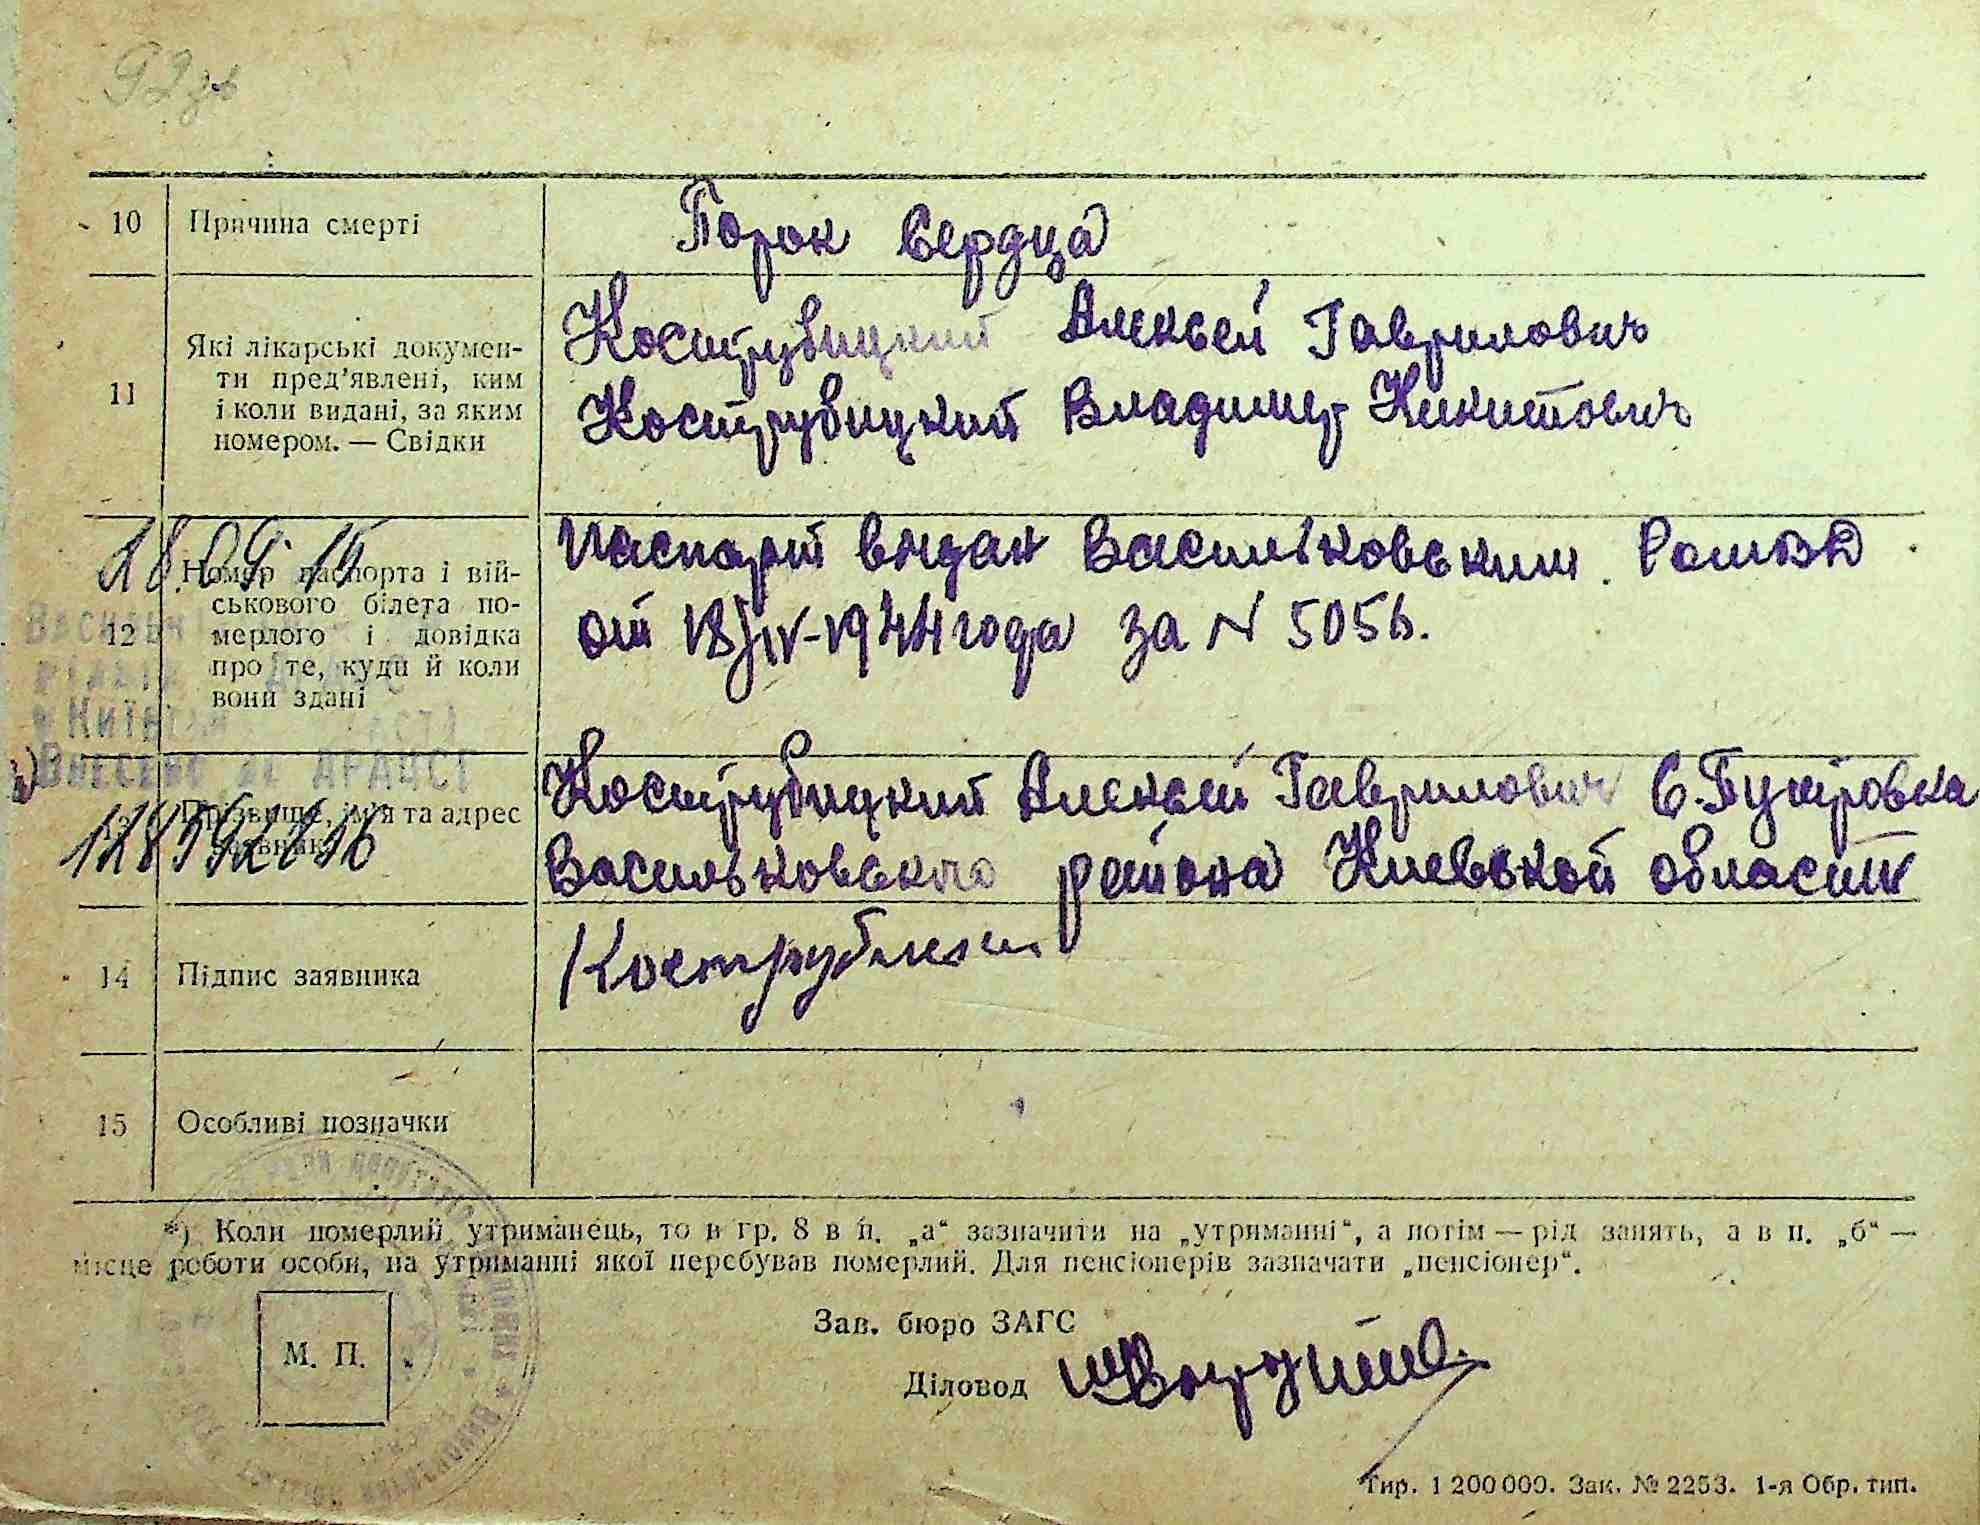 92зв
10 Причина смерті Порок Сердца
11 Які лікарські докумен-
ти пред’явлені, ким
і коли видані, за яким
номером. — Свідки
Кострубицкий Алексей Гаврилович
Кострубицкий Владимир Никитович
18.09.15
12 Номер паспорта і вій-
ськового білета по-
мерлого і довідка
про те, куди й коли
вони здані
Паспорт выдан Васильковским РОМВД
от 18/IV-1944 года за N 5056.
Внесено до ДРАЦСГ
13 Прізвище, ім’я та адрес
заявника
Кострубицкий Алексей Гаврилович С.
Васильковского района Киевской области
14 Підпис заявника
15 Особливі позначки
*) Коли померлий утриманець, то в гр. 8 в п. „а“ зазначити на „утриманні“, а потім — рід занять, а в п. „б“ —
місце роботи особи, на утриманні якої перебував померлий. Для пенсіонерів зазначати „пенсіонер“.
Зав. бюро ЗАГС
М. П.
Діловод
Тир. 1 200 000. Зак. № 2253. 1-я Обр. тип.